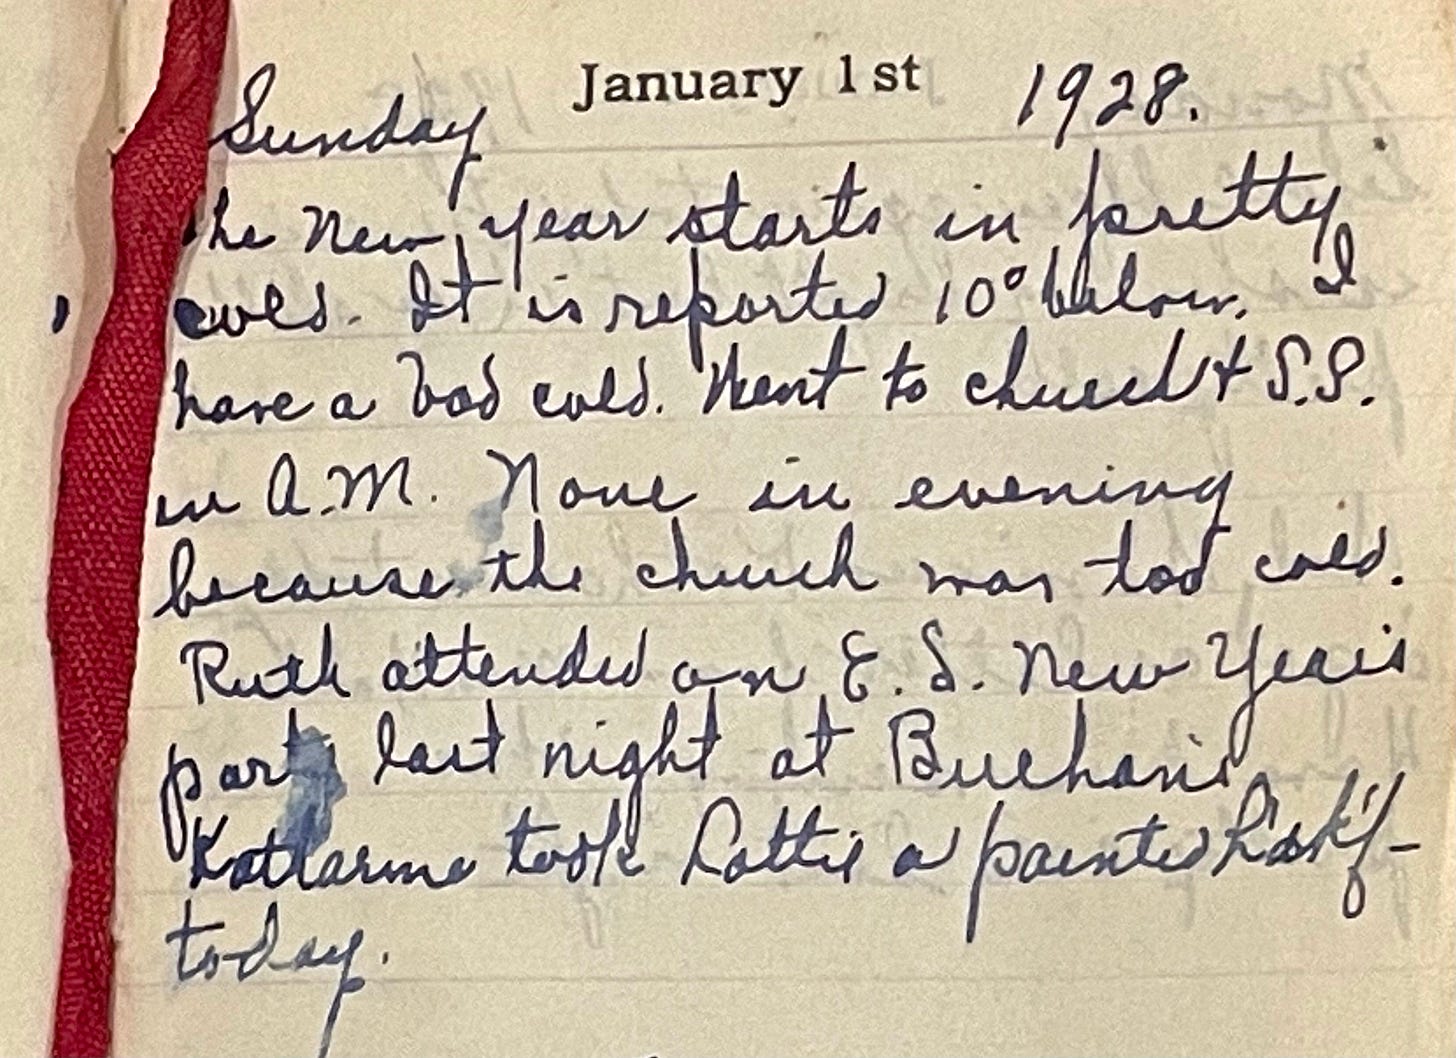 January 1st 1928.
Sunday
The New year starts in pretty
cold. It is reported 10° below. I
have a bad cold. Went to church & S.S.
in A.M. None in evening
because the church was too cold.
Ruth attended an E.S. New Year's
party last night at Buchans
Katharine took Lottie a painted hdk'f-
today.